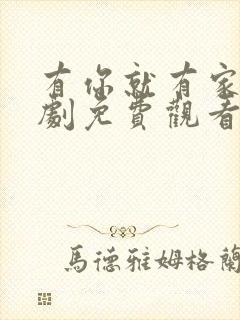 有你就有家
劇免費觀看
馬德雅姆格蘭